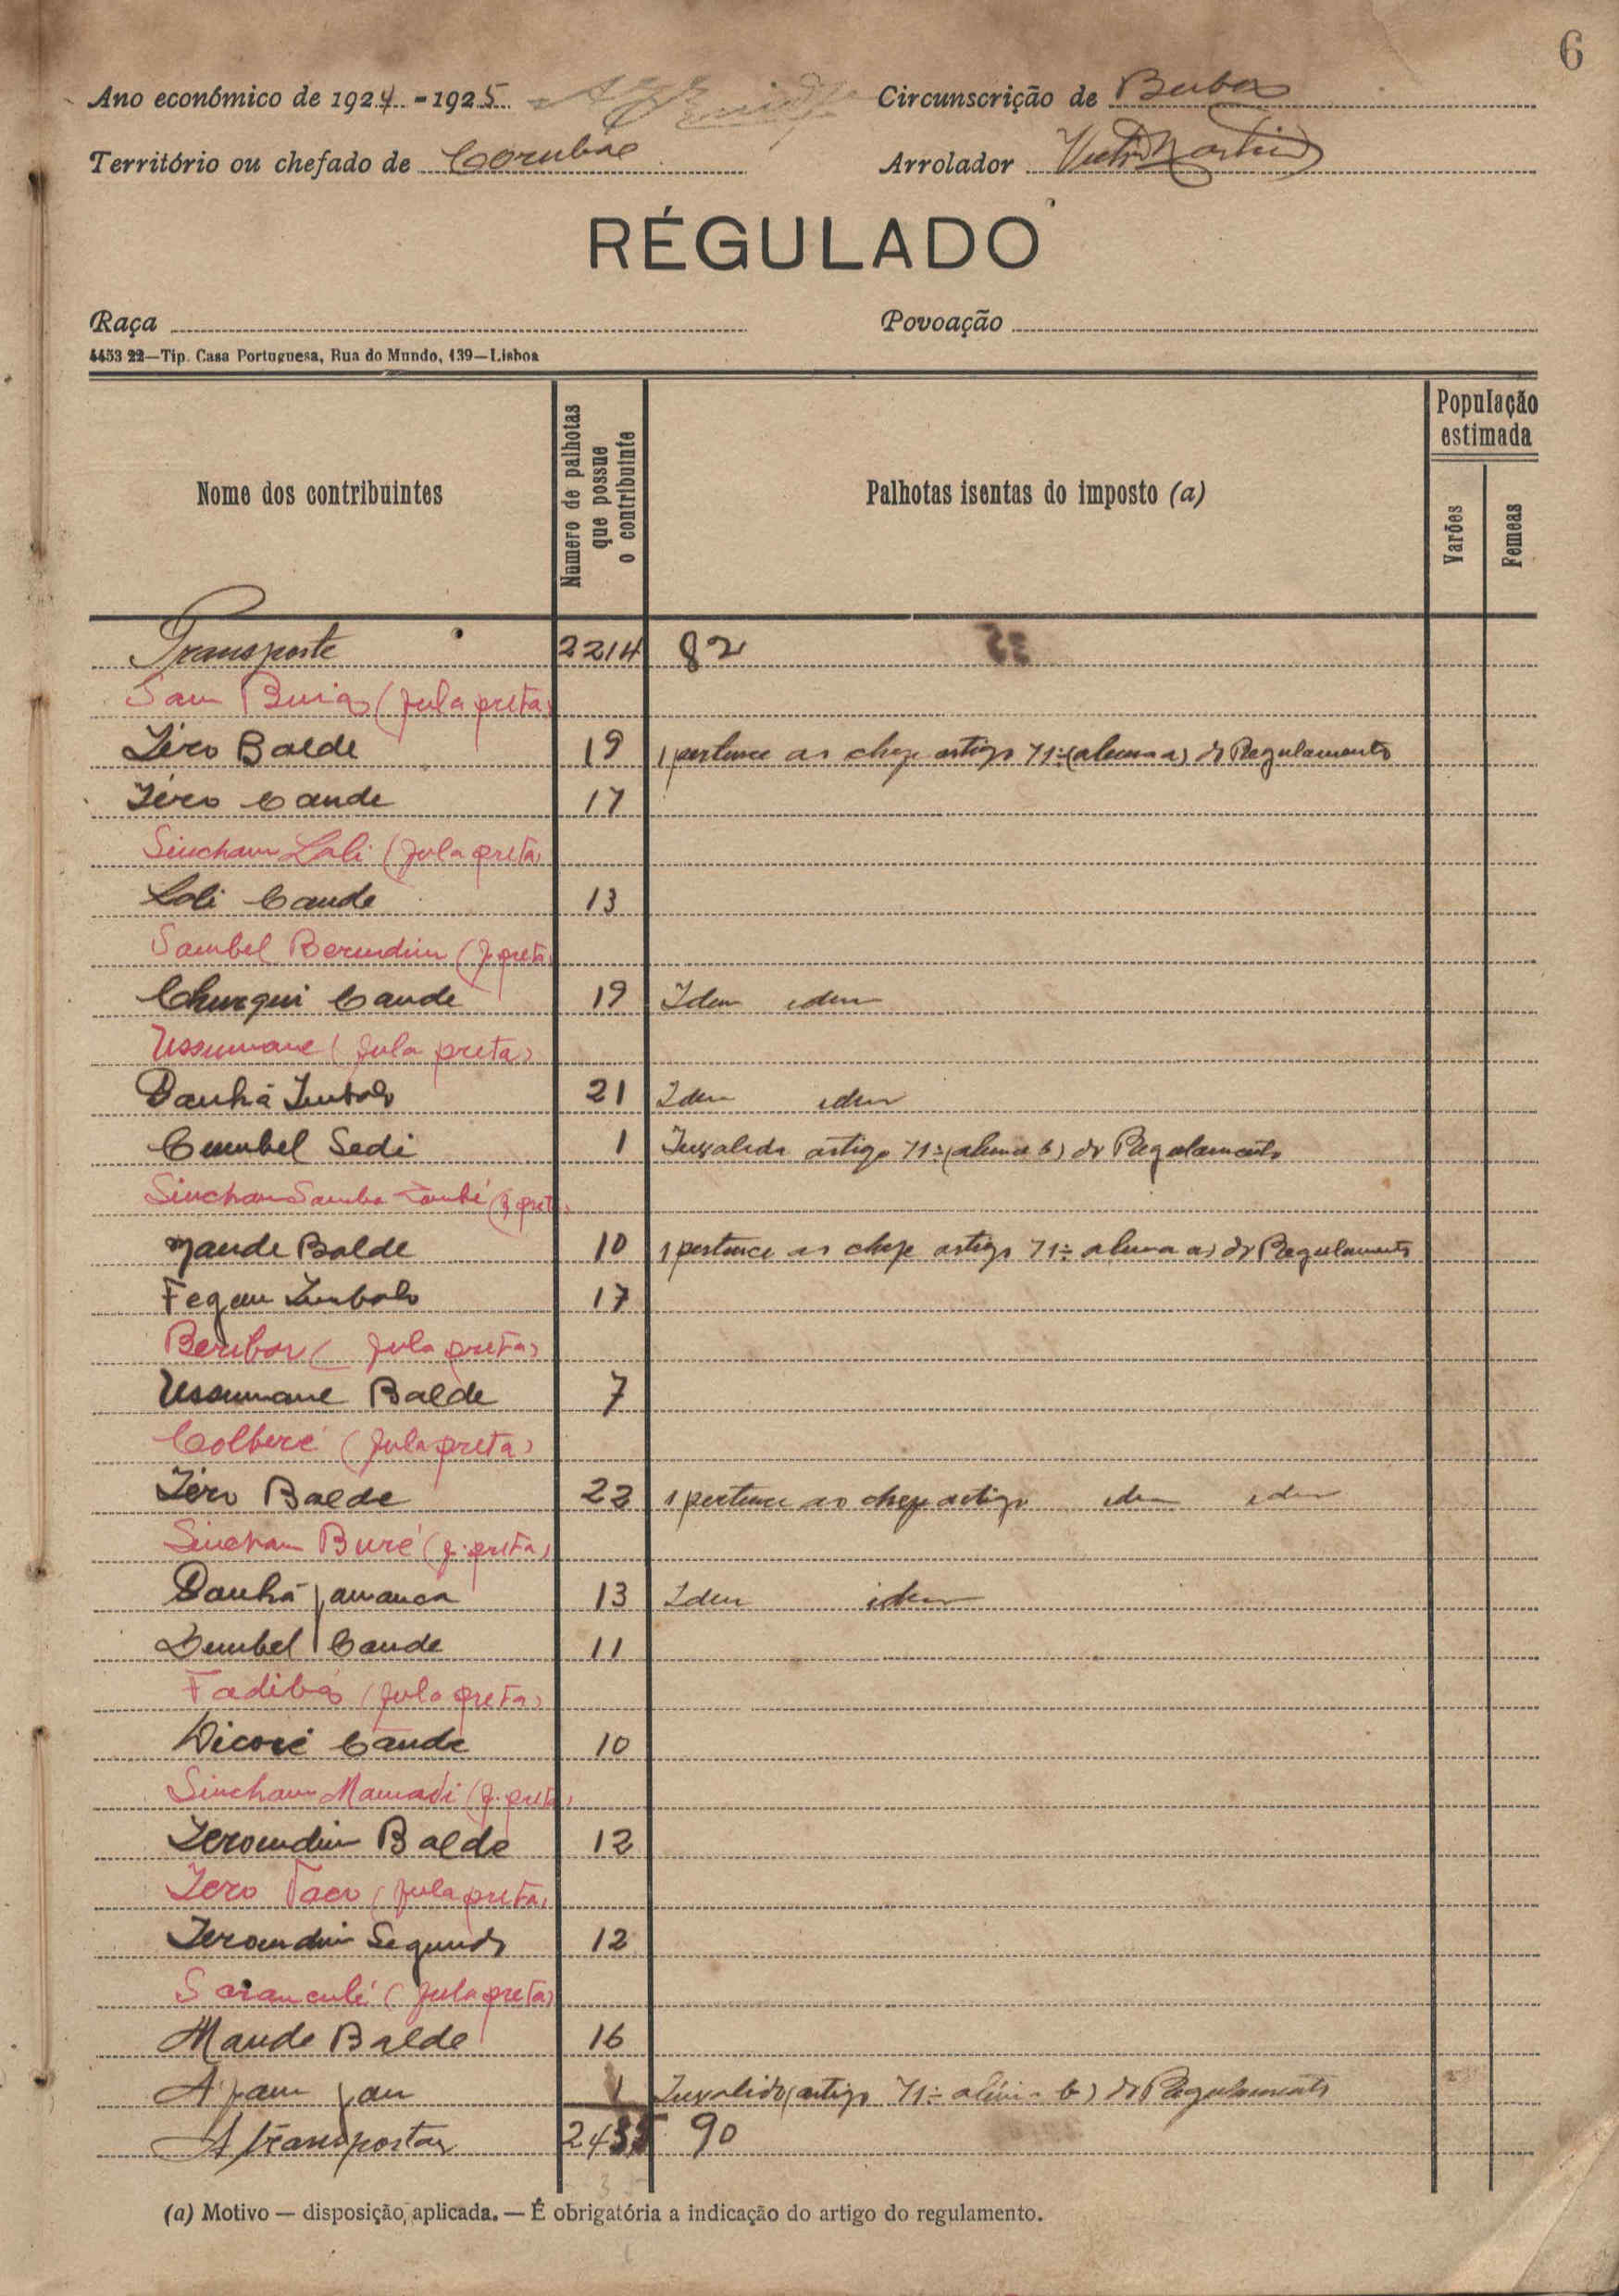 6
Ano económico de 1924-1925
Circunscrição de Buba
Território ou chefado de Corubal
Arrolador Victor Martins
RÉGULADO
Raça
Povoação
4453 22—Tip. Casa Portuguesa, Rua do Mundo, 139—Lisboa
Nome dos contribuintes
Número de palhotas que possue o contribuinte
Palhotas isentas do imposto (a)
População estimada
Varões
Femeas
Transporte 2214 82
(fula preta)
Iéro Balde 19 1 pertence ao chefe artigo 71º (alinea a) do Regulamento
Iéro Cande 17
Sincham Lali (fula preta)
Lali Cande 13
Sambel Berendim (f. preta)
Churqui Cande 19 Idem idem
Ussumane (fula preta)
Danhá Imbalo 21 Idem idem
Cumbel Sedi 1 Invalido artigo 71º (alinea b) do Regulamento
Sincham Samba (f. preta)
Mande Balde 10 1 pertence ao chefe artigo 71º alinea a) do Regulamento
17
(fula preta)
Ussumane Balde 7
Colberé (fula preta)
Iéro Balde 22 1 pertence ao chefe artigo idem idem
Sincham Buré (f. preta)
Danhá Jamanca 13 Idem idem
Dembel Cande 11
Fadibá (fula preta)
Dicoré Cande 10
Sincham Mamadi (f. preta)
Ieroendim Balde 12
Iero (fula preta)
Ieroendim Segundo 12
Saranculé (fula preta)
Mande Balde 16
1 Invalido (artigo 71º alinea b) do Regulamento
A transportar 2435 90
(a) Motivo — disposição aplicada. — É obrigatória a indicação do artigo do regulamento.